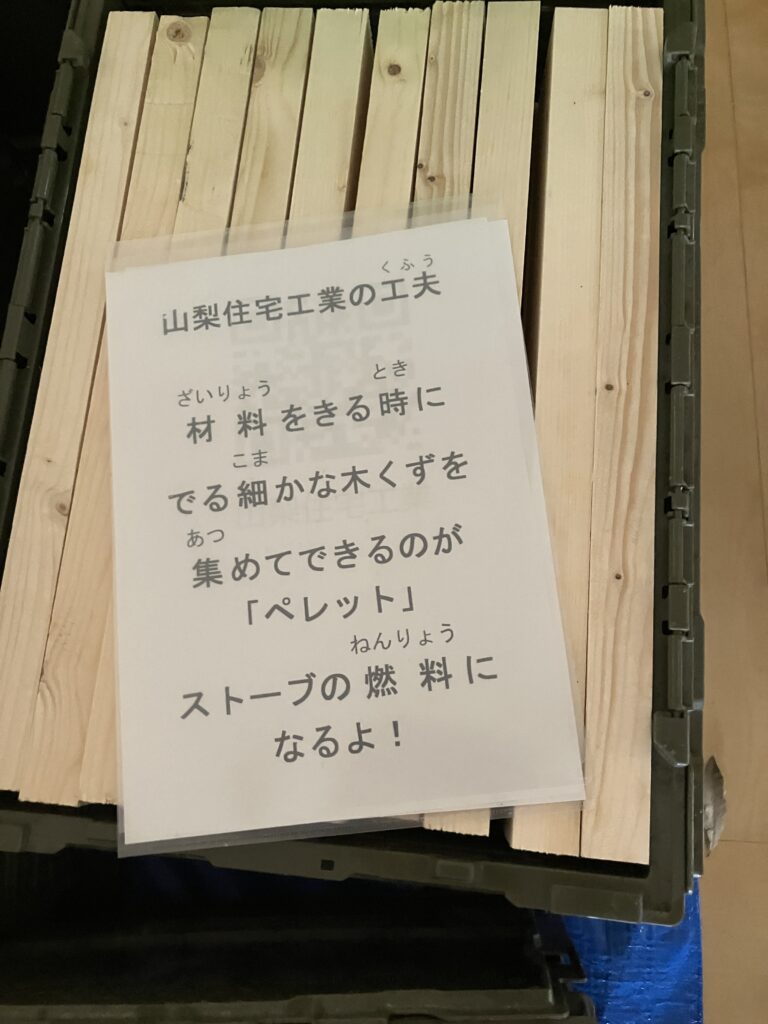 山梨住宅工業の工夫
くふう
ざいりょう
とき
材料をきる時に
こま
でる細かな木くずを
あつ
集めてできるのが
「ペレット」
ねんりょう
ストーブの燃料に
なるよ！